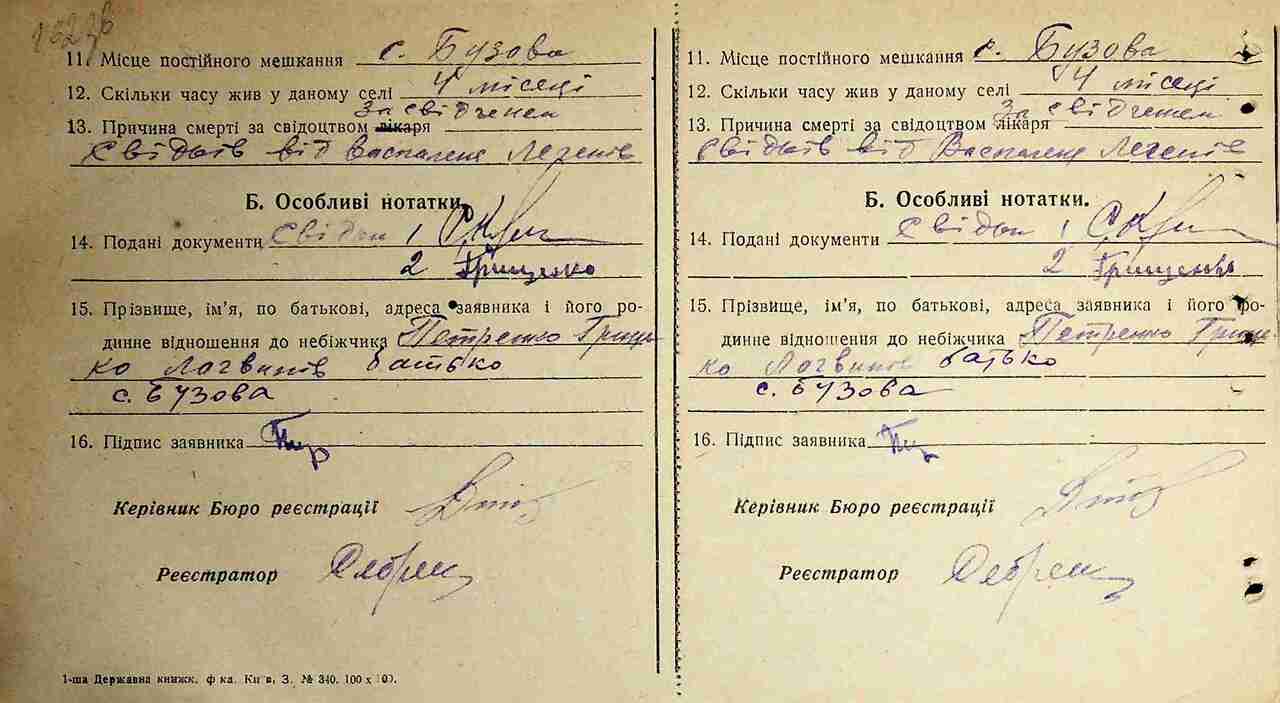 11. Місце постійного мешкання с. Бузова
12. Скільки часу жив у даному селі 4 місеці
за свідченем
13. Причина смерті за свідоцтвом лікаря
свідків від Воспалене Легенів
Б. Особливі нотатки.
14. Подані документи Свідки 1
2 Грищенко
15. Прізвище, ім'я, по батькові, адреса заявника і його ро-
динне відношення до небіжчика Петренко Грице
ко Логвинов батько
с. Бузова
16. Підпис заявника
Керівник Бюро реєстрації
Реєстратор
1-ша Державна книжк. ф-ка. Київ, З. № 340. 100 х 100.
11. Місце постійного мешкання с. Бузова
12. Скільки часу жив у даному селі 4 місеці
за свідченем
13. Причина смерті за свідоцтвом лікаря
свідків від Воспалене Легенів
Б. Особливі нотатки.
14. Подані документи Свідки 1
2 Грищенко
15. Прізвище, ім'я, по батькові, адреса заявника і його ро-
динне відношення до небіжчика Петренко Грице
ко Логвинов батько
с. Бузова
16. Підпис заявника
Керівник Бюро реєстрації
Реєстратор